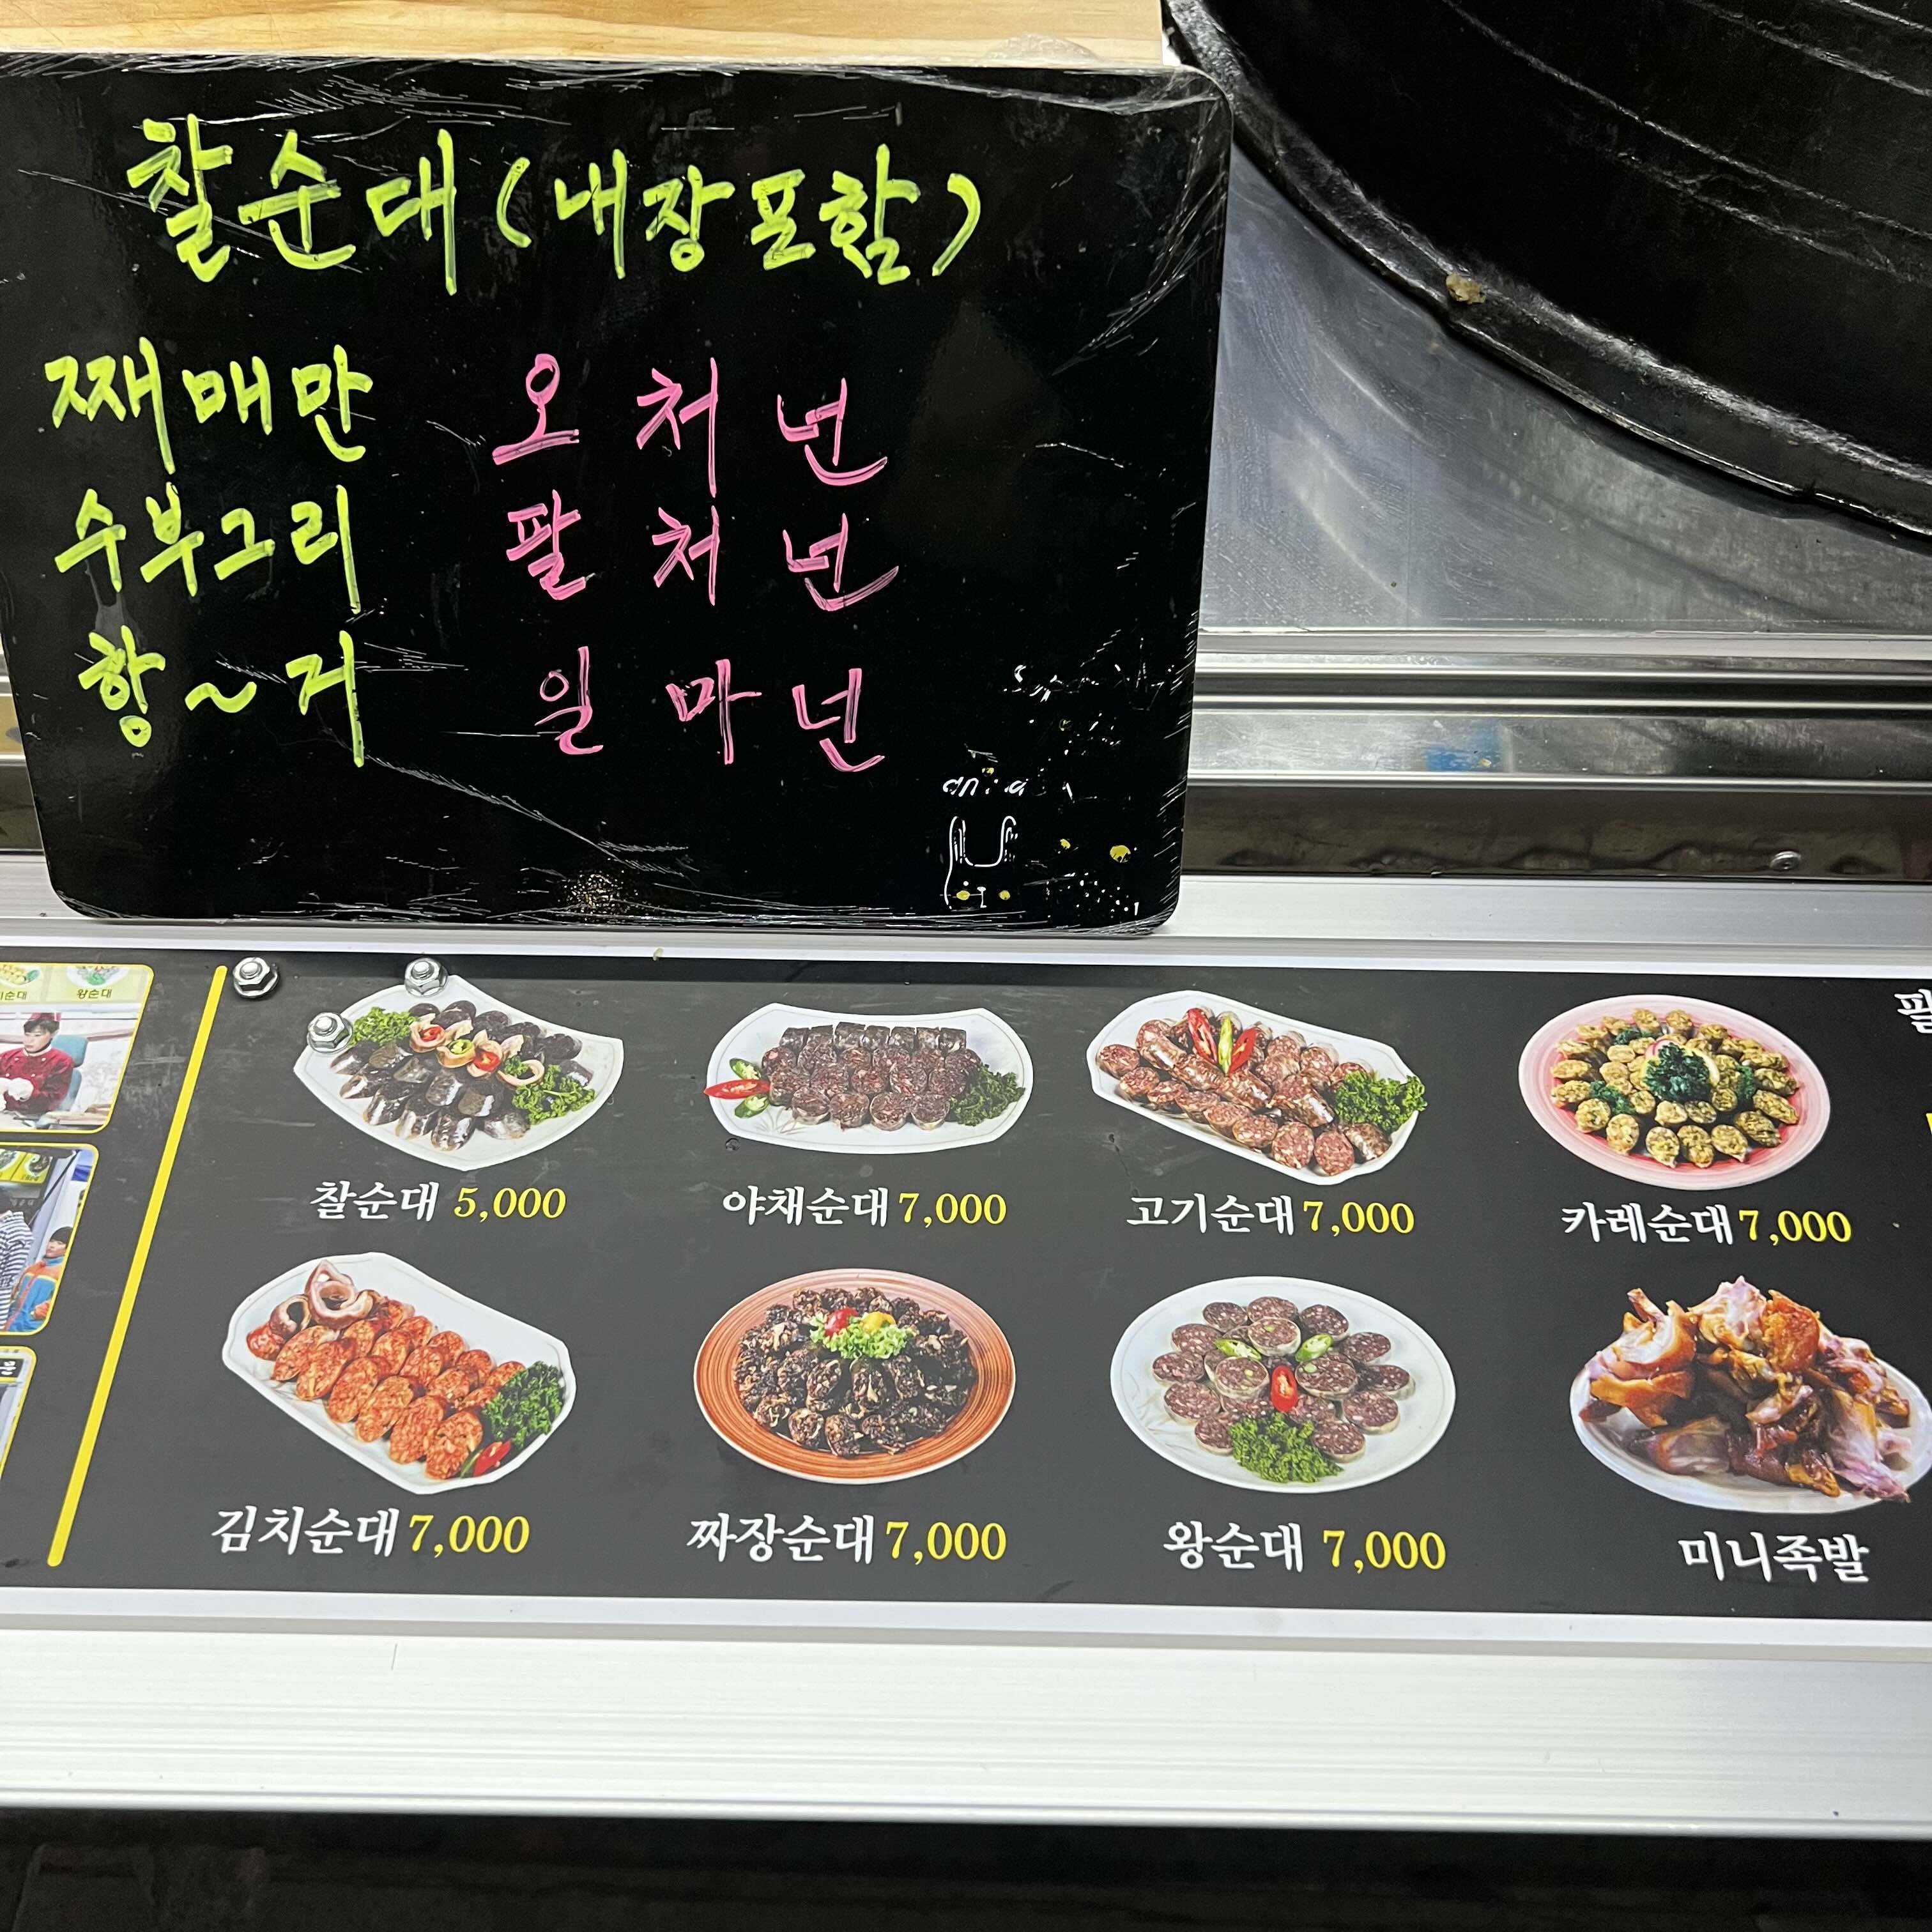 찰순대(내장포함)
째매만 오 처 넌
수부그리 팔 처 넌
항~거 일 마 넌
왕순대
찰순대 5,000
야채순대 7,000
고기순대 7,000
카레순대 7,000
김치순대 7,000
짜장순대 7,000
왕순대 7,000
미니족발